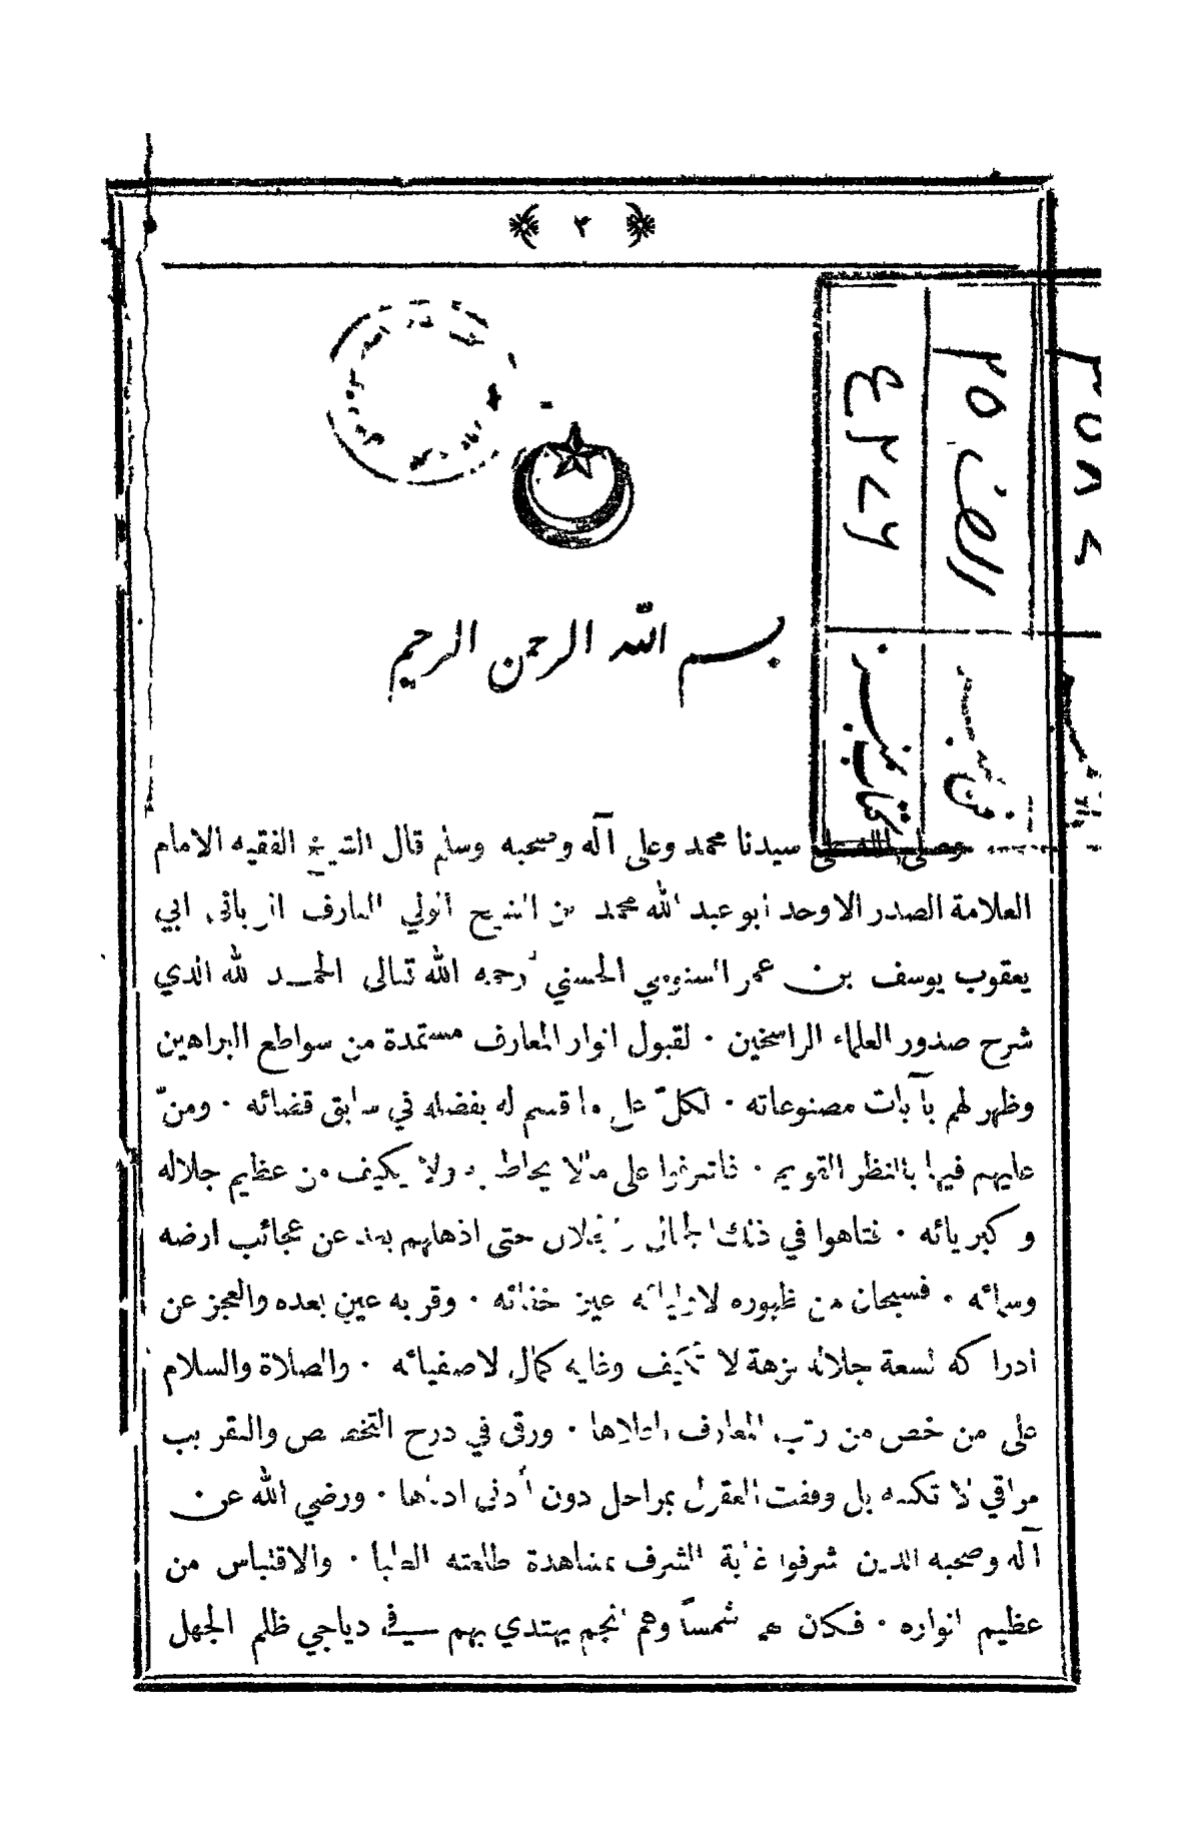 ٢
بسم الله الرحمن الرحيم
وصلى الله على سيدنا محمد وعلى آله وصحبه وسلم قال الشيخ الفقيه الامام
العلامة الصدر الاوحد ابو عبد الله محمد بن الشيخ الولي العارف الرباني ابي
يعقوب يوسف بن عمر السنوسي الحسني رحمه الله تعالى الحمد لله الذي
شرح صدور العلماء الراسخين · لقبول انوار المعارف مستمدة من سواطع البراهين
وظهر لهم بآيات مصنوعاته · لكلّ على ما قسم له بفضله في سابق قضائه · ومنّ
عليهم فيها بالنظر القويم · فاشرفوا على مالا يحاط به ولا يكيف من عظيم جلاله
وكبريائه · فتاهوا في ذلك الجمال حتى اذهلهم بعد عن عجائب ارضه
وسمائه · فسبحان من ظهوره لاوليائه عين خفائه · وقربه عين بعده والعجز عن
ادراكه لسعة جلاله نزهة لا تكيف وغاية كمال لاصفيائه · والصلاة والسلام
على من خص من رتب المعارف باعلاها · ورقى في درج التخصص والتقريب
مراقي لا تكيف بل وقفت العقول بمراحل دون أدنى ادناها · ورضي الله عن
آله وصحبه الذين شرفوا غاية الشرف بمشاهدة طلعته العليا · والاقتباس من
عظيم انواره · فكان هو شمساً وهم انجم يهتدي بهم في دياجي ظلم الجهل
رصف ٢٥
٤٢٧٦